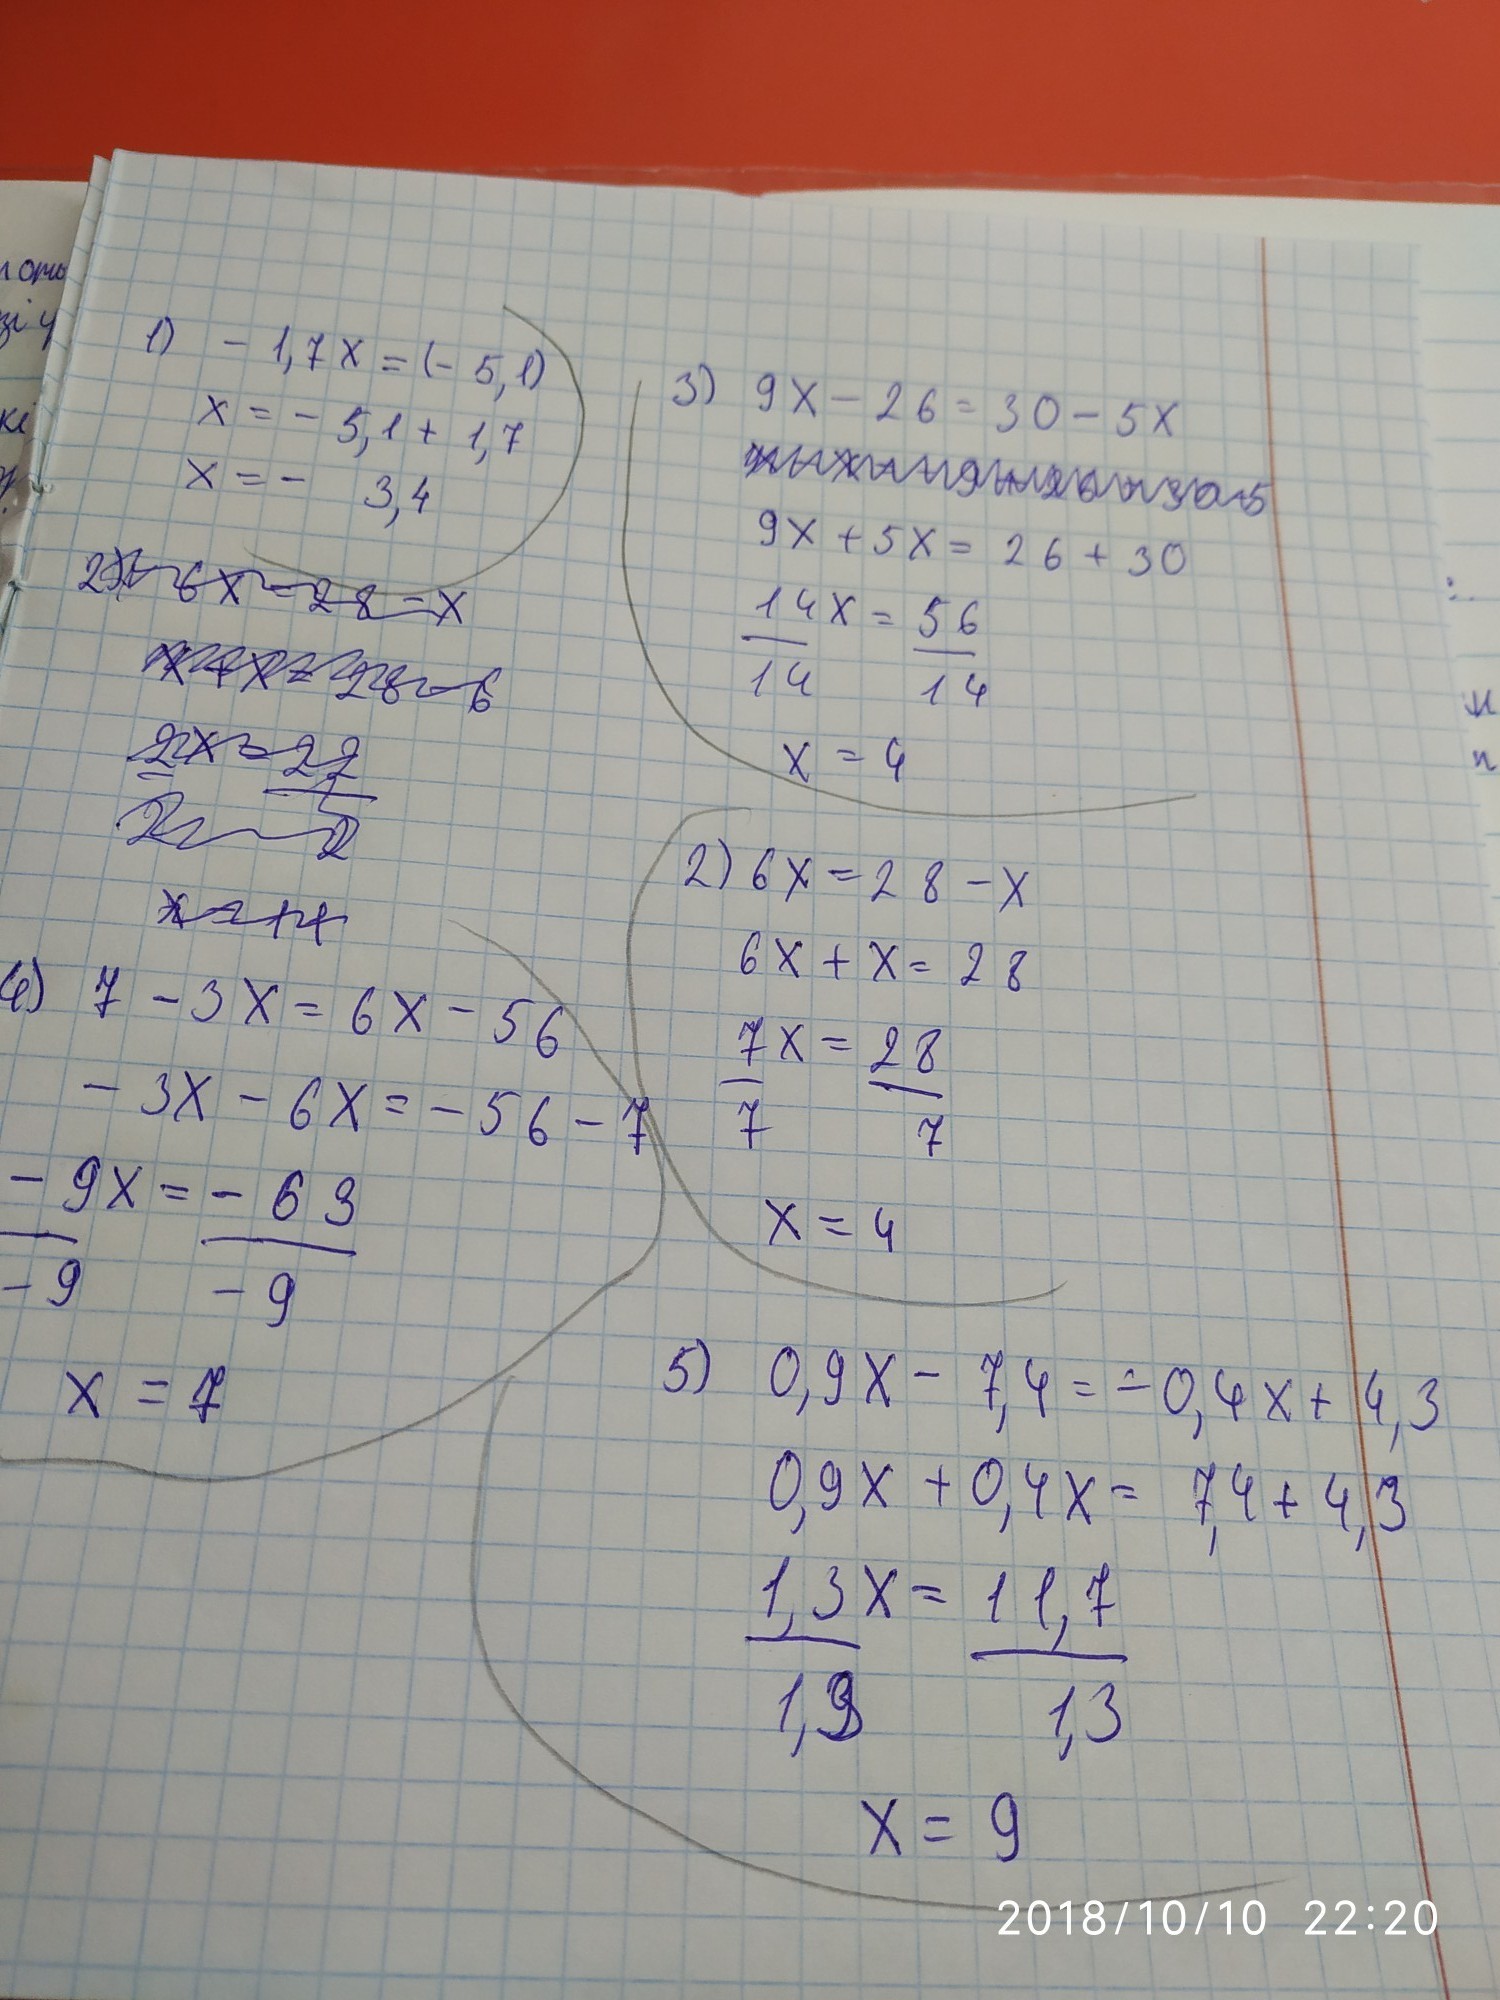 1) - 1,7x = (- 5,1)
x = - 5,1 + 1,7
x = - 3,4
3) 9x - 26 = 30 - 5x
9x + 5x = 26 + 30
14x = 56
14 14
x = 4
2) 6x = 28 - x
6x + x = 28
7x = 28
7 7
x = 4
4) 7 - 3x = 6x - 56
- 3x - 6x = - 56 - 7
- 9x = - 63
- 9 - 9
x = 7
5) 0,9x - 7,4 = - 0,4x + 4,3
0,9x + 0,4x = 7,4 + 4,3
1,3x = 11,7
1,3 1,3
x = 9
2018/10/10 22:20